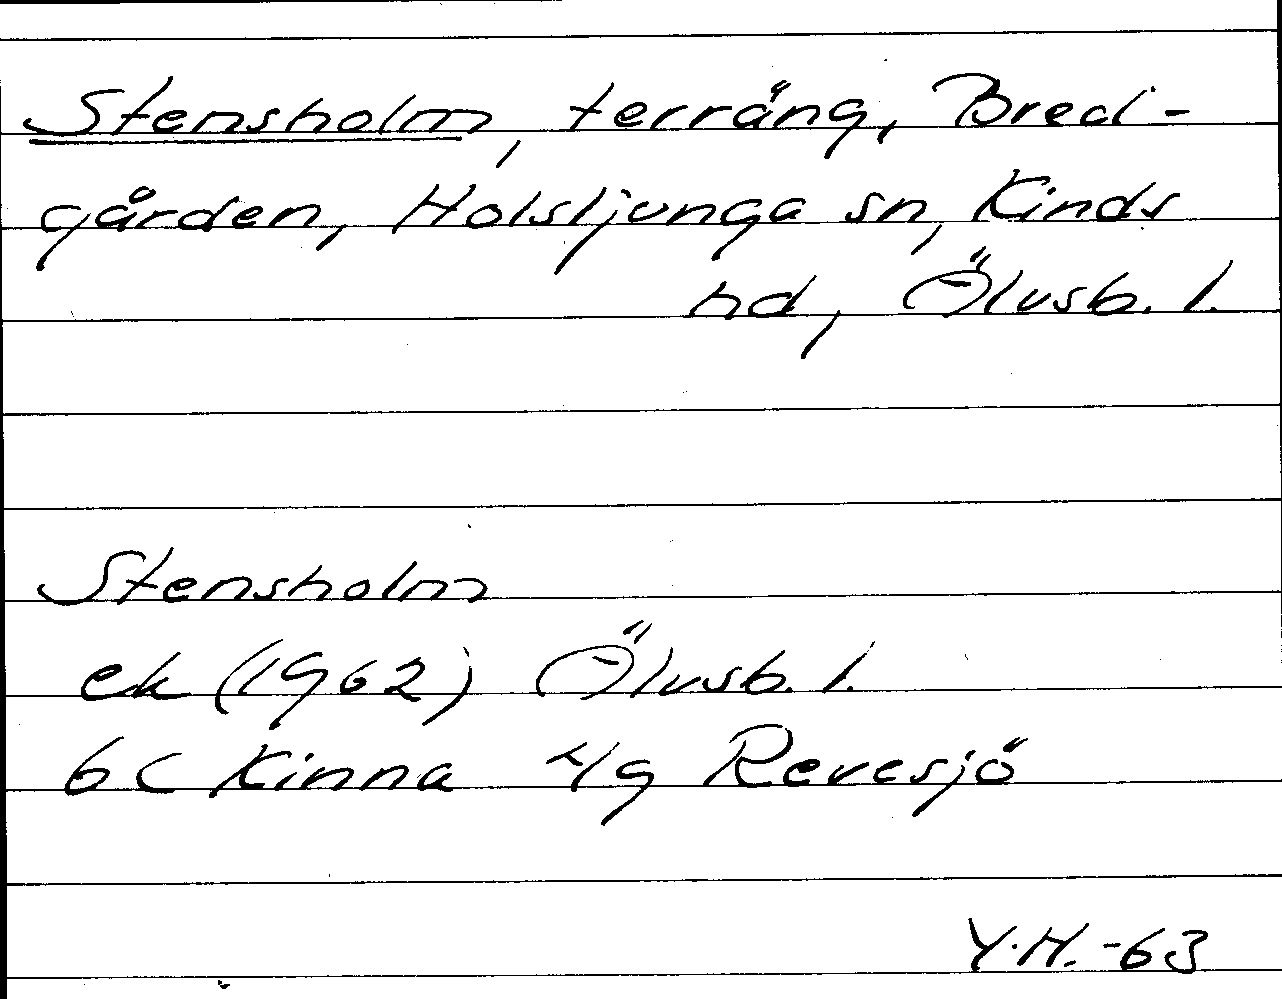 Stensholm, terräng, Bred-
gården, Holsljunga sn, Kinds
hd, Älvsb. l.
Stensholm
ek (1962) Älvsb. l.
6C Kinna 4g Revesjö
Y.H. -63